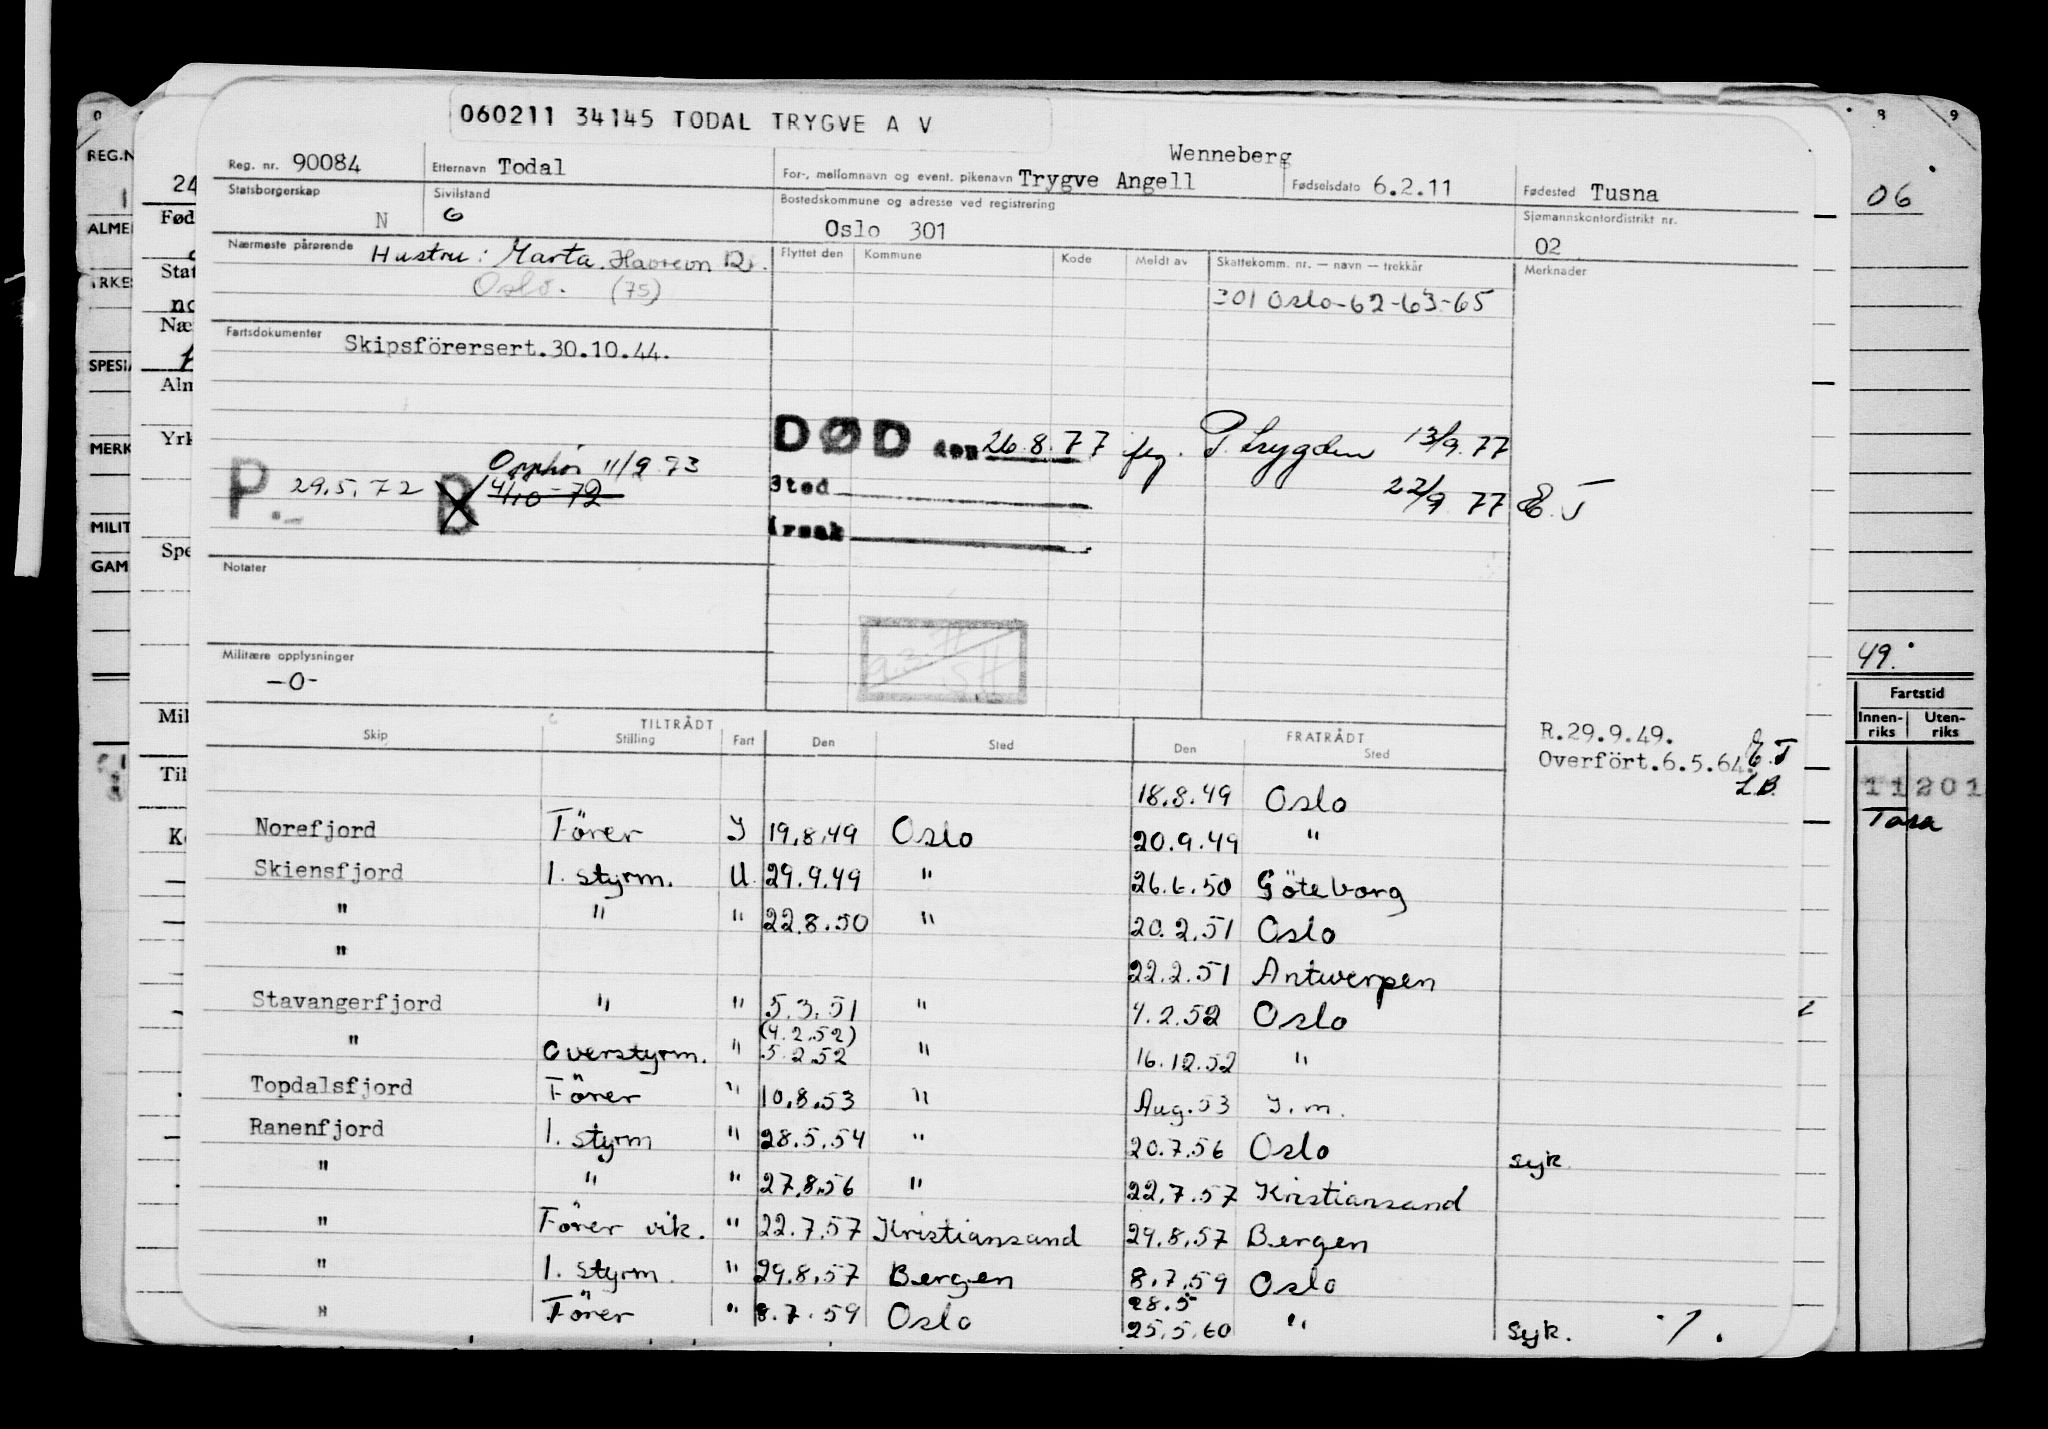 060211 34145 TODAL TRYGVE A V
Reg. nr. 90084 Etternavn Todal For-, mellomnavn og event. pikenavn Trygve Angell Wenneberg Fødselsdato 6.2.11 Fødested Tusna
Statsborgerskap N Sivilstand G Bostedskommune og adresse ved registrering Oslo 301 Sjømannskontordistrikt nr. 02
Nærmeste pårørende Hustru: Marta. Havrevn 12.
Oslo. (75)
Flyttet den Kommune Kode Meldt av Skattekomm. nr. — navn — trekkår Merknader
301 Oslo-62-63-65
Fartsdokumenter Skipsförersert.30.10.44.
DØD den 26.8.77 Trygden 13/9.77
Sted 22/9 77 E.T
Årsak
Opphør 11/9 73
P. 29.5.72 B 4/10-72
Notater
Militære opplysninger
-0-
TILTRÅDT FRATRÅDT
Skip Stilling Fart Den Sted Den Sted
R.29.9.49.
Overfört.6.5.64. E.T
L.B.
18.8.49 Oslo
Norefjord Förer I 19.8.49 Oslo 20.9.49 "
Skiensfjord 1. styrm. U. 29.9.49 " 26.6.50 Göteborg
" " " 22.8.50 " 20.2.51 Oslo
" 22.2.51 Antwerpen
Stavangerfjord " " 5.3.51 " 4.2.52 Oslo
(4.2.52)
" Overstyrm. " 5.2.52 " 16.12.52 "
Topdalsfjord Förer " 10.8.53 " Aug.53 I.m.
Ranenfjord 1. styrm " 28.5.54 " 20.7.56 Oslo syk.
" " " 27.8.56 " 22.7.57 Kristiansand
" Förer vik. " 22.7.57 Kristiansand 29.8.57 Bergen
" 1. styrm. " 29.8.57 Bergen 8.7.59 Oslo
28.5
" Förer " 8.7.59 Oslo 25.5.60 " syk.
REG.N
24
ALMEI
Fød
YRKES
Stat
no
Næ
SPESIA
Alm
MERK
Yrk
MILIT
Spe
GAM
Mil
Til
8 9
06
49.
Fartstid
Innen-riks Uten-riks
11201
Tara